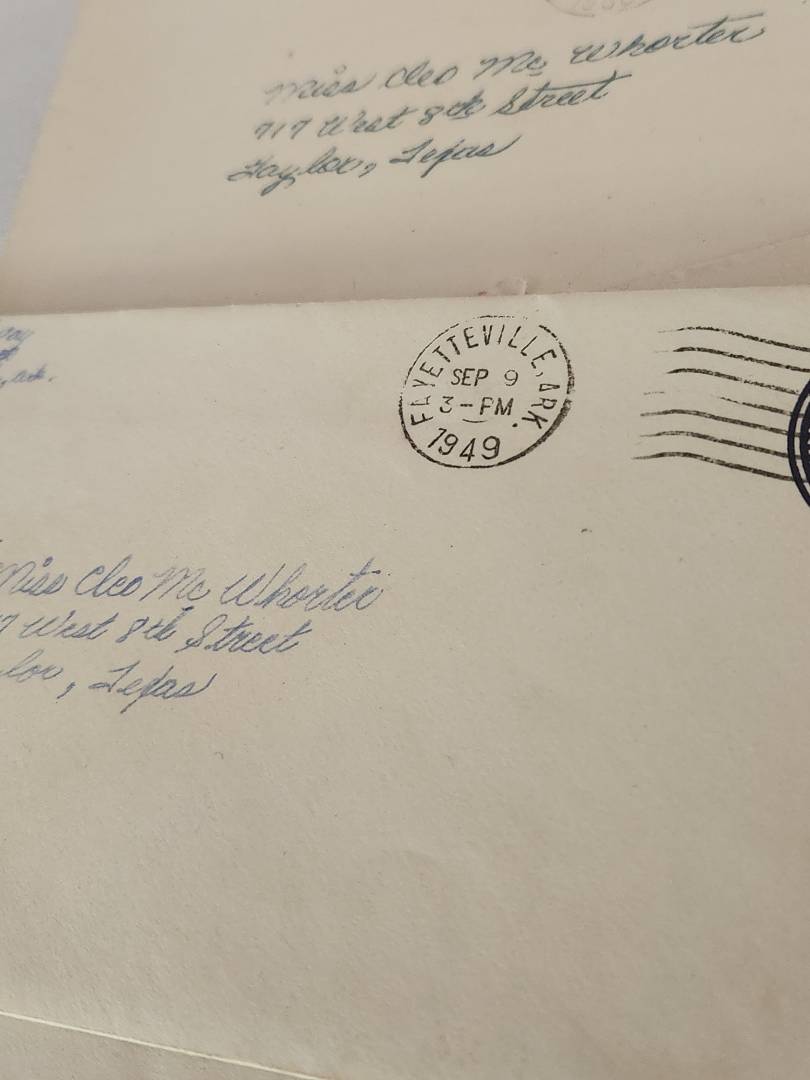 Miss Cleo Mc Whorter
717 West 8th Street
Taylor, Texas
, Ark.
FAYETTEVILLE, ARK.
SEP 9
3-PM
1949
Miss Cleo Mc Whorter
7 West 8th Street
lor, Texas